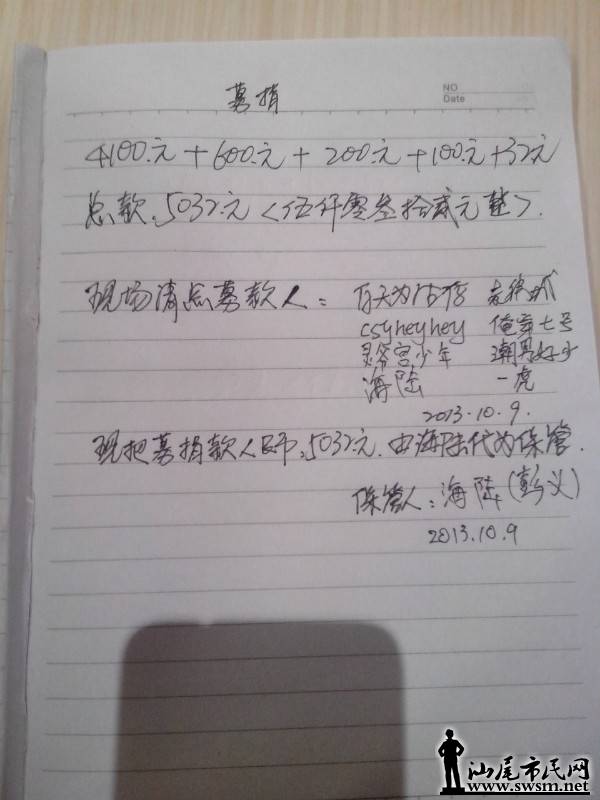 募捐
NO
Date
4100.元+600.元+200.元+100.元+32元
总款.5032.元<伍仟零叁拾贰元整>.
现场清点募款人:
csyheyhey 俺军七号
爵爷宫少年 潮男好少
海陆 一虎
2013.10.9.
现把募捐款人民币.5032.元.由海陆代为保管.
保管人:海陆(彭义)
2013.10.9
汕尾市民网
www.swsm.net